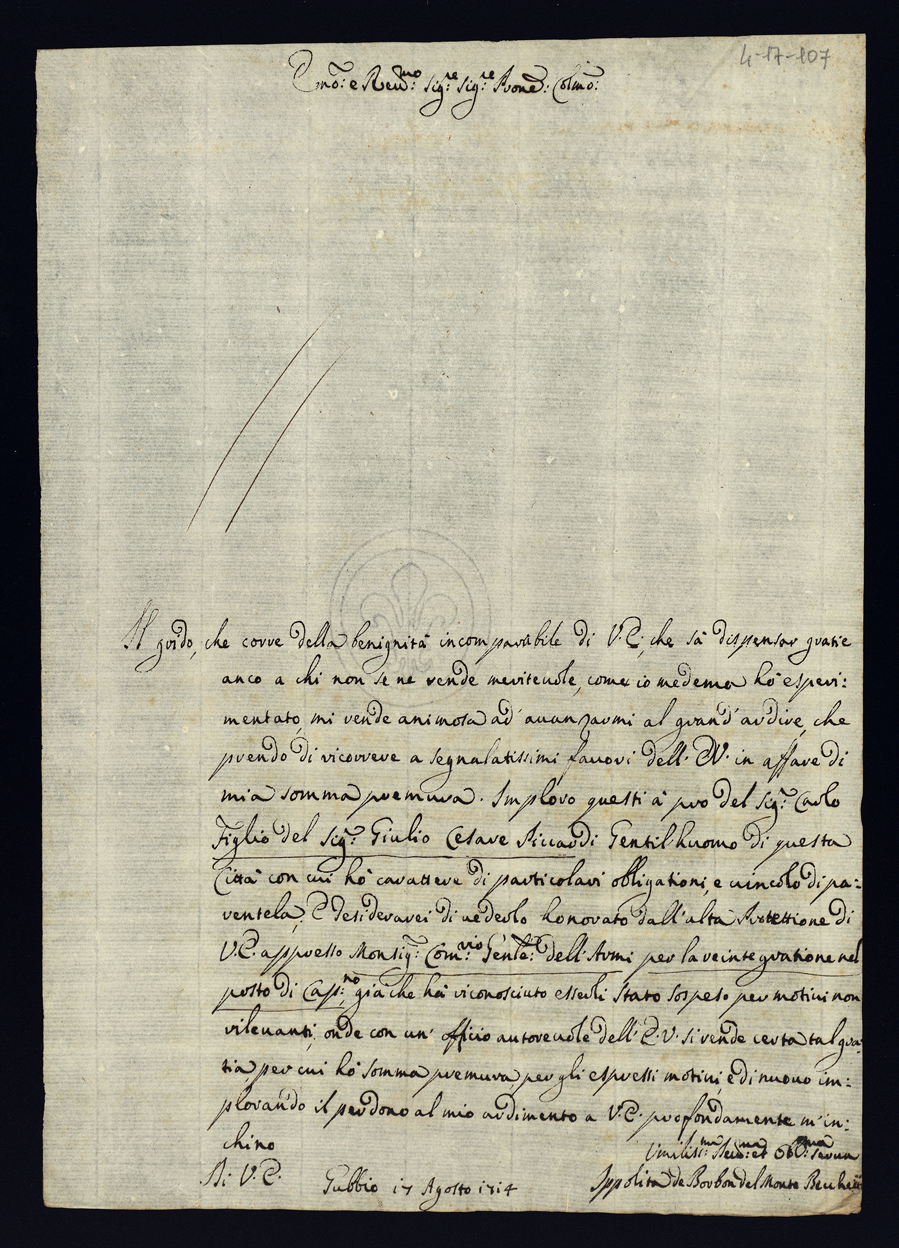 4-17-107
Emõ: e Reu:mo Sig:re Sig:re Prone: Colmo:
Il grido, che corre della benignità incomparabile di V.E., che sà dispensar gratie
anco a chi non se ne rende meriteuole, come io medema hò esperi:
mentato, mi rende animosa ad' auanzarmi al grand' ardire, che
prendo di ricorrere a segnalatissimi fauori dell' E.V. in affare di
mia somma premura. Imploro questi à pro del Sig:r Carlo
Figlio del Sig:r Giulio Cesare Riccardi Gentilhuomo di questa
Città con cui hò carattere di particolari obligationi, e uincolo di pa:
rentela, E desiderarei di uederlo honorato dall' alta Protettione di
V.E. appresso Monsig:r Com:rio Genle: dell' Armi per la reintegratione nel
posto di Cap:no, già che hà riconosciuto esserli stato sospeso per motiui non
rileuanti, onde con un' officio autoreuole dell' E.V. si rende certa tal gra:
tia, per cui hò somma premura, per gli espressi motiui, e di nuouo im:
plorando il perdono al mio ardimento a V.E. profondamente m' in:
chino
Di V.E.
Gubbio 17 Agosto 1714
Umiliss:ma Deu:ma et Obl:ma Serua
Ippolita de Borbon del Monte